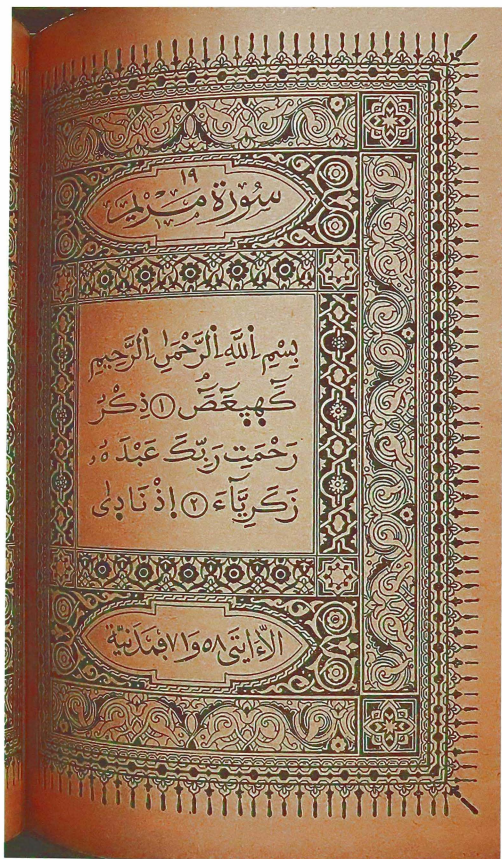 ١٩
سُورَة مَرْيَم
بِسْمِ اِللَّهِ اِلرَّحْمَٰنِ اِلرَّحِيمِ
كَٓهيعَٓصَٓ ١ ذِكْرُ
رَحْمَتِ رَبِّكَ عَبْدَهُۥ
زَكَرِيَّآءَ ٢ إِذْ نَادٜىٰ
إلا ءايتى ٥٨ و ٧١ فمدنية